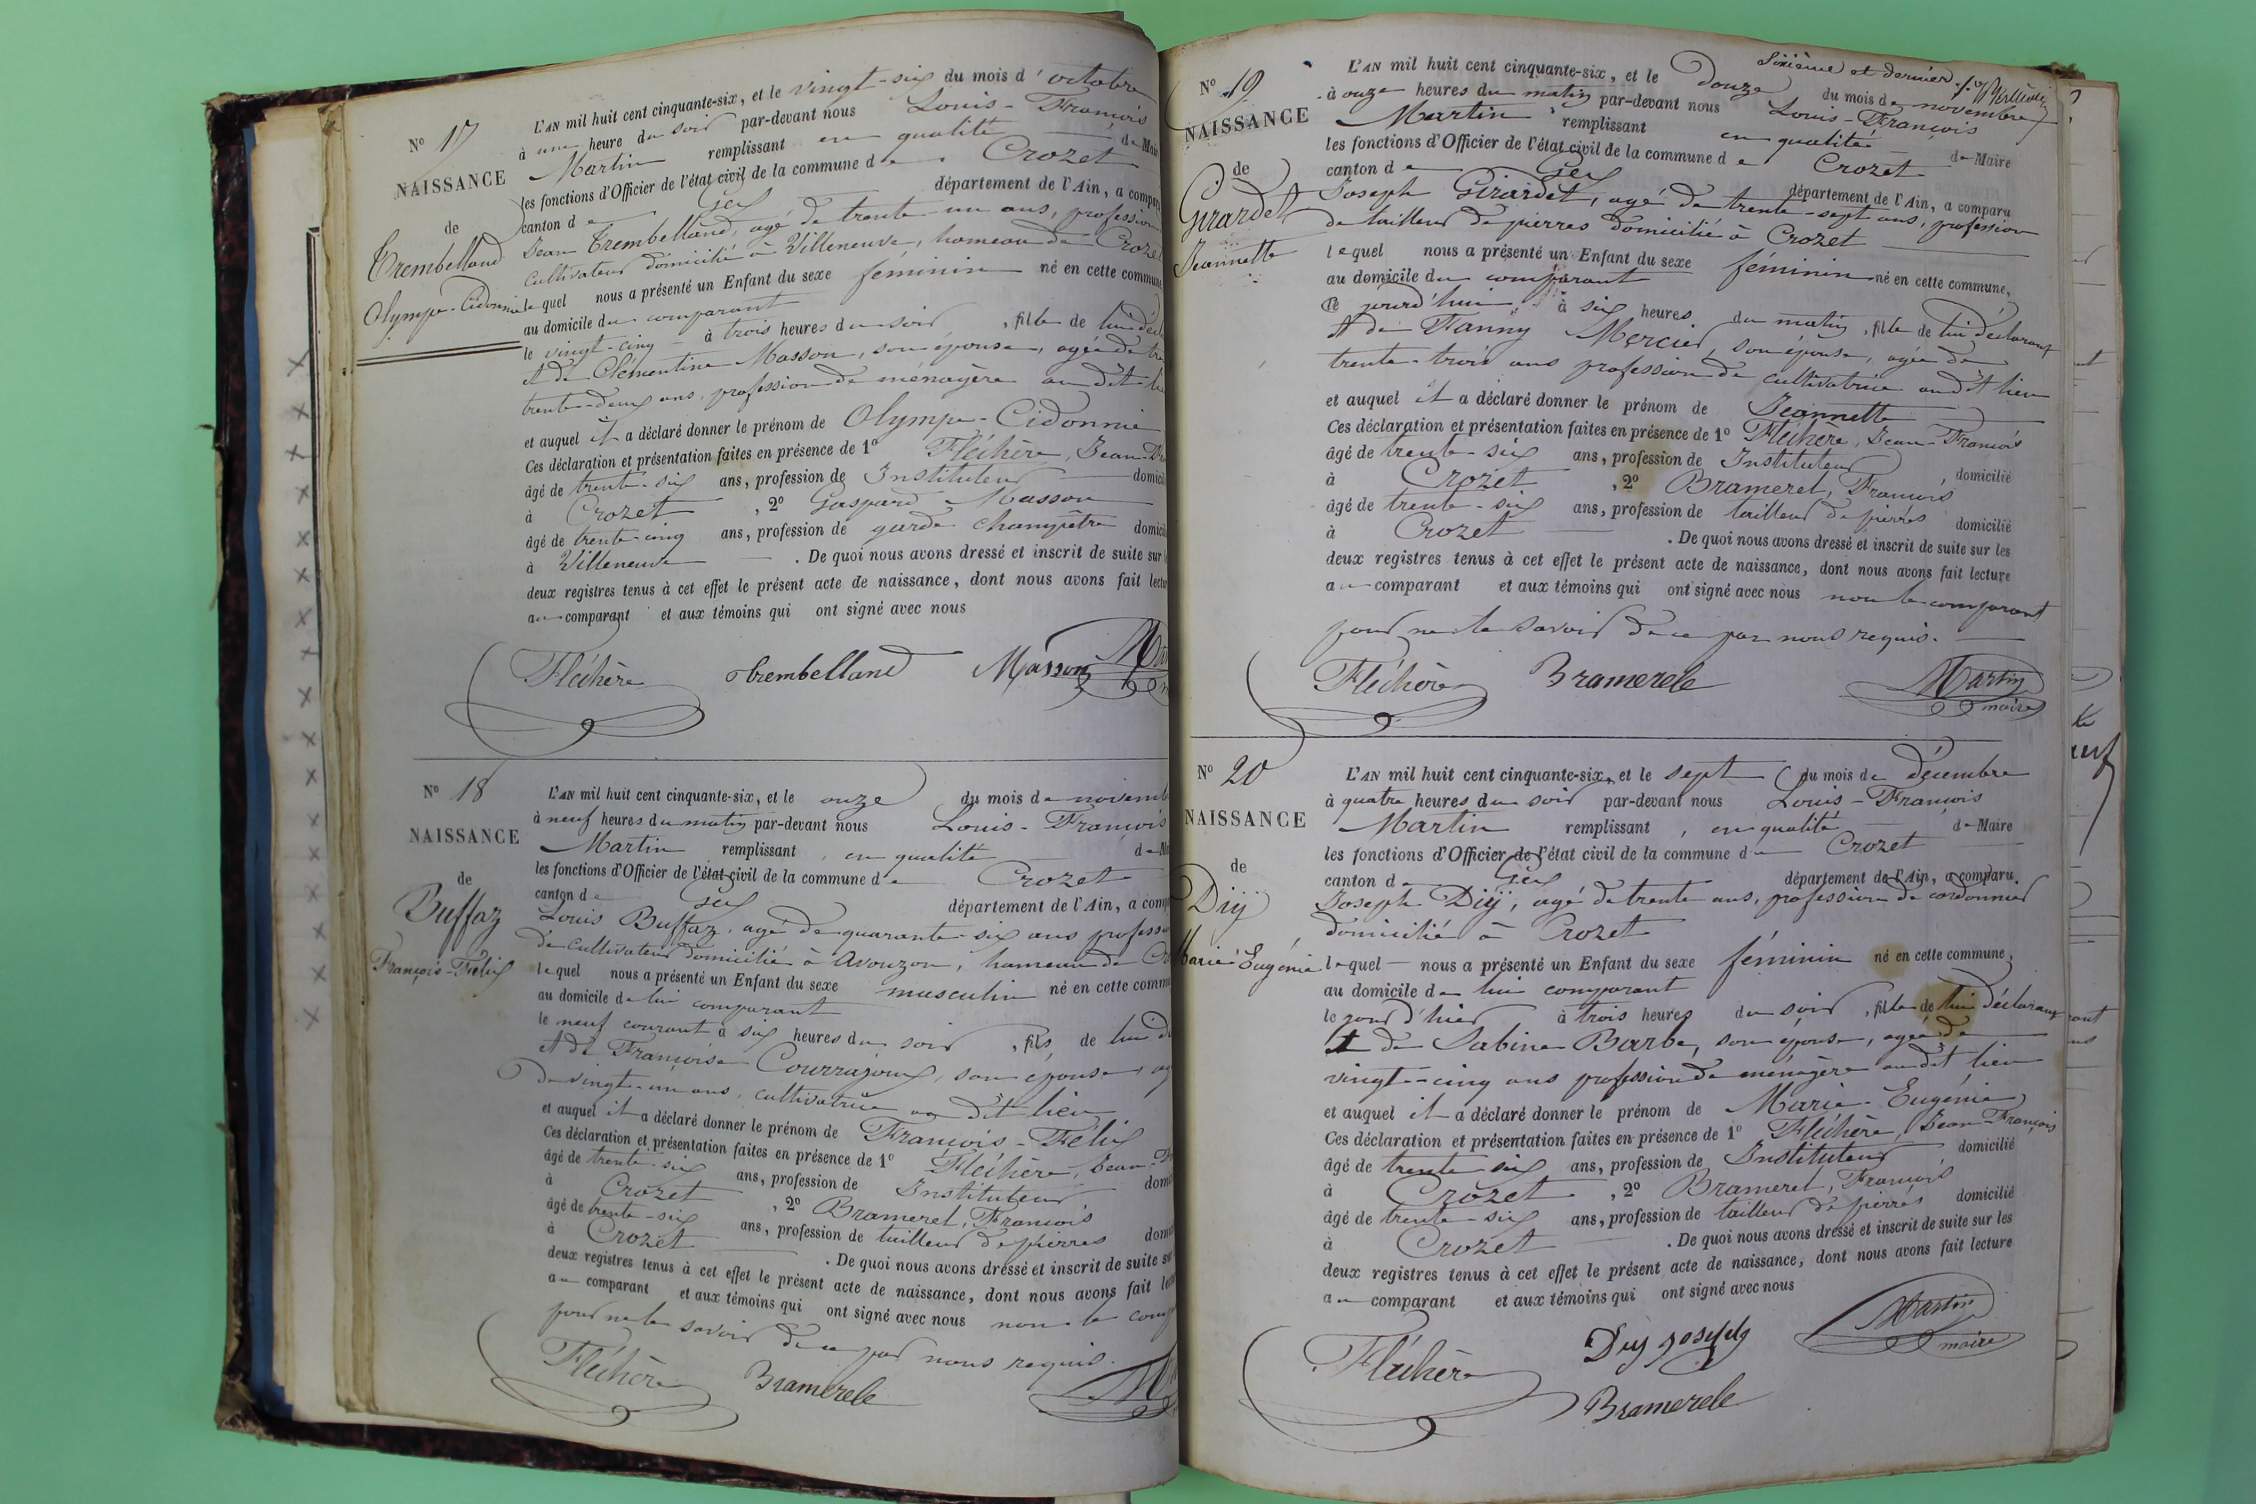 N° 17
NAISSANCE
de
Trembelland
Olympe-Cidonnie
L'AN mil huit cent cinquante-six, et le vingt-six du mois d'octobre
à une heure du soir par-devant nous Louis-François
Martin remplissant en qualité de Mair
les fonctions d'Officier de l'état civil de la commune de Crozet
canton de Gex département de l'Ain, a compar
Jean Trembelland, agé de trente-un ans, profession
cultivateur domicilié à Villeneuve, hameau de Crozet
lequel nous a présenté un Enfant du sexe féminin né en cette commune
au domicile du comparant
le vingt-cinq à trois heures du soir, fille de lui décl
et de Clémentine Masson, son épouse, agée de
trente-deux ans, profession de ménagère au dit lieu
et auquel il a déclaré donner le prénom de Olympe-Cidonnie
Ces déclaration et présentation faites en présence de 1° Fléchère, Jean-
âgé de trente-six ans, profession de Instituteur domicil
à Crozet, 2° Gaspard Masson
âgé de trente-cinq ans, profession de garde champêtre domicil
à Villeneuve. De quoi nous avons dressé et inscrit de suite sur
deux registres tenus à cet effet le présent acte de naissance, dont nous avons fait lectu
au comparant et aux témoins qui ont signé avec nous
Fléchère Trembelland Masson Mar
N° 18
NAISSANCE
de
Buffaz
François-Félix
L'AN mil huit cent cinquante-six, et le onze du mois de novemb
à neuf heures du matin par-devant nous Louis-François
Martin remplissant, en qualité de Ma
les fonctions d'Officier de l'état civil de la commune de Crozet
canton de Gex département de l'Ain, a comp
Louis Buffaz, agé de quarante-six ans profess
de cultivateur domicilié à Avouzon, hameau de Cro
lequel nous a présenté un Enfant du sexe masculin né en cette comm
au domicile de lui comparant
le neuf courant à six heures du soir, fils de lui dé
et de Françoise Courrajoux, son épouse, ag
de vingt-un ans, cultivatrice au dit lieu
et auquel il a déclaré donner le prénom de François-Félix
Ces déclaration et présentation faites en présence de 1° Fléchère, Jean-Fr
âgé de trente-six ans, profession de Instituteur domi
à Crozet, 2° Brameret, François
âgé de trente-six ans, profession de tailleur de pierres domi
à Crozet. De quoi nous avons dressé et inscrit de suite su
deux registres tenus à cet effet le présent acte de naissance, dont nous avons fait lect
au comparant et aux témoins qui ont signé avec nous non le comp
pour ne le savoir de ce par nous requis.
Fléchère Bramerele M
Sixième et dernier.
N° 19
NAISSANCE
de
Girardet
Jeannette
L'AN mil huit cent cinquante-six, et le douze du mois de novembre
à onze heures du matin par-devant nous Louis-François
Martin remplissant en qualité de Maire
les fonctions d'Officier de l'état civil de la commune de Crozet
canton de Gex département de l'Ain, a comparu
Joseph Girardet, agé de trente-sept ans, profession
de tailleur de pierres domicilié à Crozet
lequel nous a présenté un Enfant du sexe féminin né en cette commune,
au domicile du comparant
Ce jourd'hui à six heures du matin, fille de lui déclarant
et de Fanny Mercier, son épouse, agée de
trente-trois ans profession de cultivatrice au dit lieu
et auquel il a déclaré donner le prénom de Jeannette
Ces déclaration et présentation faites en présence de 1° Fléchère, Jean-François
âgé de trente-six ans, profession de Instituteur domicilié
à Crozet, 2° Brameret, François
âgé de trente-six ans, profession de tailleur de pierres domicilié
à Crozet. De quoi nous avons dressé et inscrit de suite sur les
deux registres tenus à cet effet le présent acte de naissance, dont nous avons fait lecture
au comparant et aux témoins qui ont signé avec nous non le comparant
pour ne le savoir de ce par nous requis.
Fléchère Bramerele Martin
maire
N° 20
NAISSANCE
de
Diÿ
Marie-Eugénie
L'AN mil huit cent cinquante-six, et le sept du mois de décembre
à quatre heures du soir par-devant nous Louis-François
Martin remplissant, en qualité de Maire
les fonctions d'Officier de l'état civil de la commune de Crozet
canton de Gex département de l'Ain, a comparu
Joseph Diÿ, agé de trente ans, profession de cordonnier
domicilié à Crozet
lequel nous a présenté un Enfant du sexe féminin né en cette commune,
au domicile de lui comparant
le jour d'hier à trois heures du soir, fille de lui déclarant
et de Sabine Barbe, son épouse, agée de
vingt-cinq ans profession de ménagère au dit lieu
et auquel il a déclaré donner le prénom de Marie-Eugénie
Ces déclaration et présentation faites en présence de 1° Fléchère, Jean-François
âgé de trente-six ans, profession de Instituteur domicilié
à Crozet, 2° Brameret, François
âgé de trente-six ans, profession de tailleur de pierres domicilié
à Crozet. De quoi nous avons dressé et inscrit de suite sur les
deux registres tenus à cet effet le présent acte de naissance, dont nous avons fait lecture
au comparant et aux témoins qui ont signé avec nous
Fléchère Diÿ Joseph Martin
maire
Bramerele